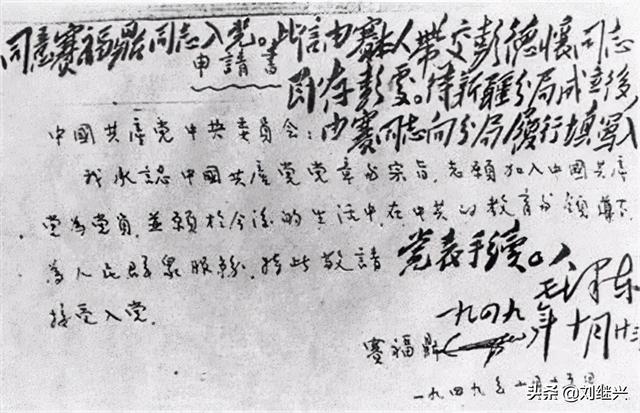 同意賽福鼎同志入党。此信由賽本人帶交彭德懷同志
即存彭處。待新疆分局成立後，
由賽同志向分局履行填寫入
党表手續。
毛澤東
一九四九年十月廿三
申請書
中國共產党中央委員会：
我承認中國共產党党章与宗旨，志願加入中國共產
党為党員，並願於今後的生活中，在中共的教育与領導下
為人民群眾服務，特此敬請
接受入党。
賽福鼎
一九四九年十月十五日
头条 @刘继兴